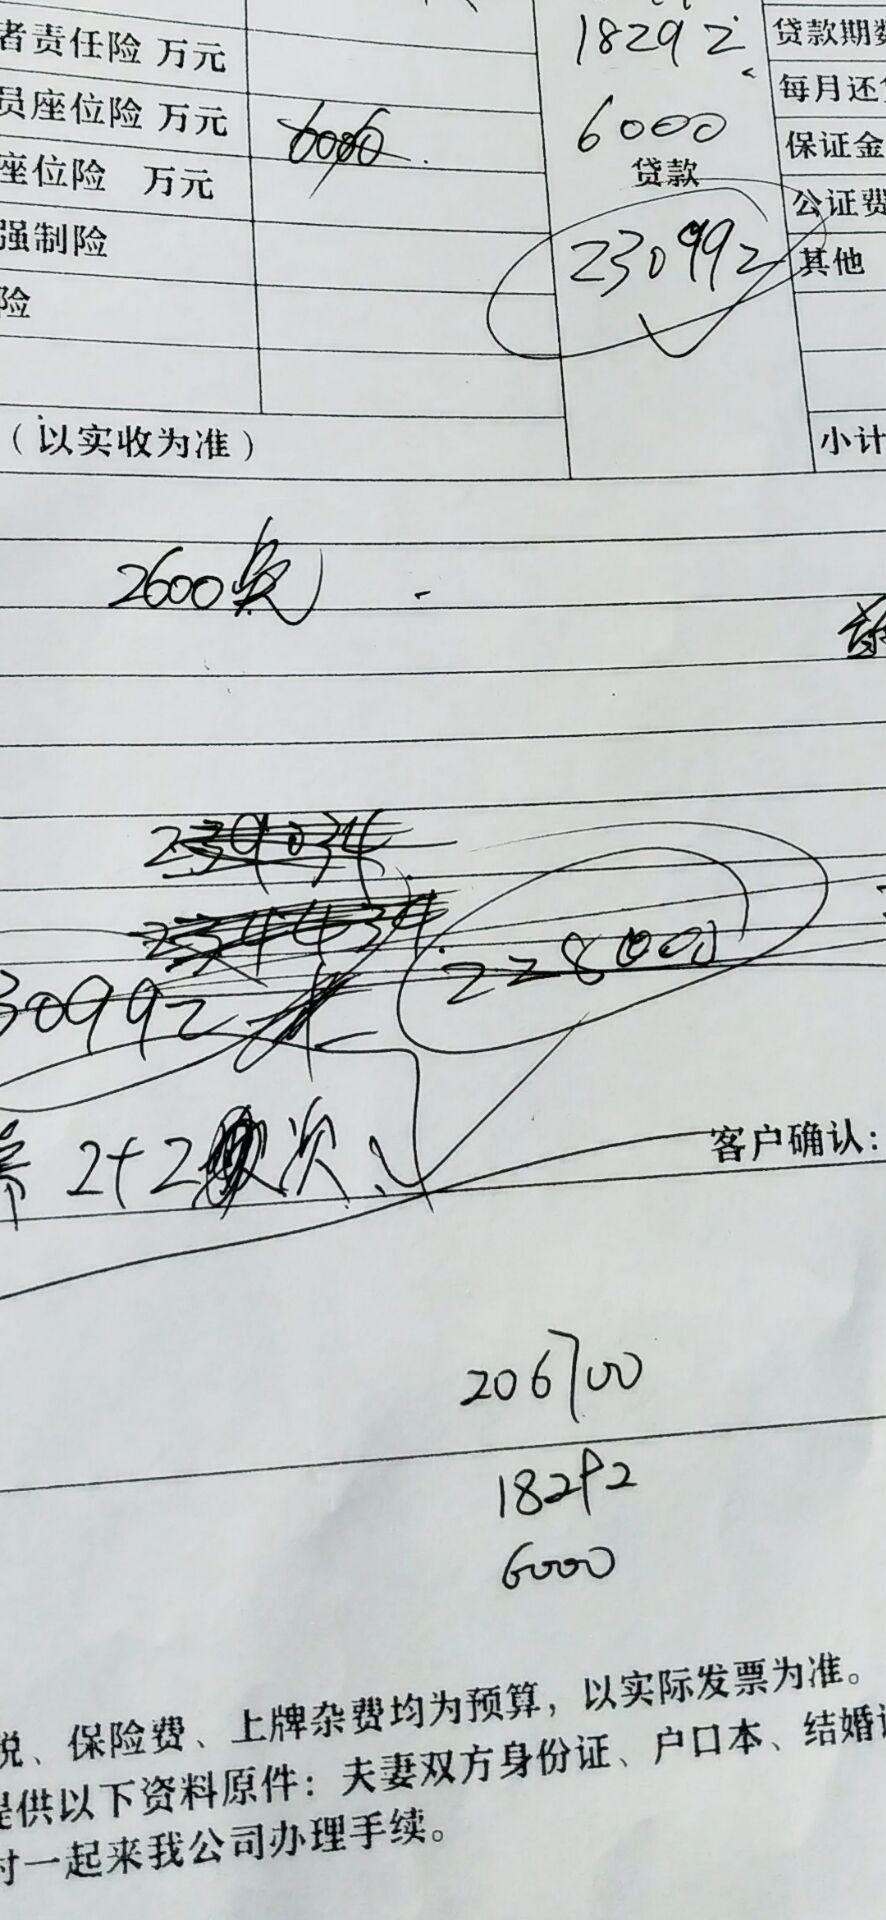 18292
贷款期数
者责任险 万元
每月还
员座位险 万元
6000
6000
保证金
座位险 万元
贷款
公证费
强制险
230992
其他
险
（以实收为准）
小计
2600点
239034
234434
228000
30992
养 2+2次
客户确认：
206700
18292
6000
税、保险费、上牌杂费均为预算，以实际发票为准。
提供以下资料原件：夫妻双方身份证、户口本、结婚
付一起来我公司办理手续。